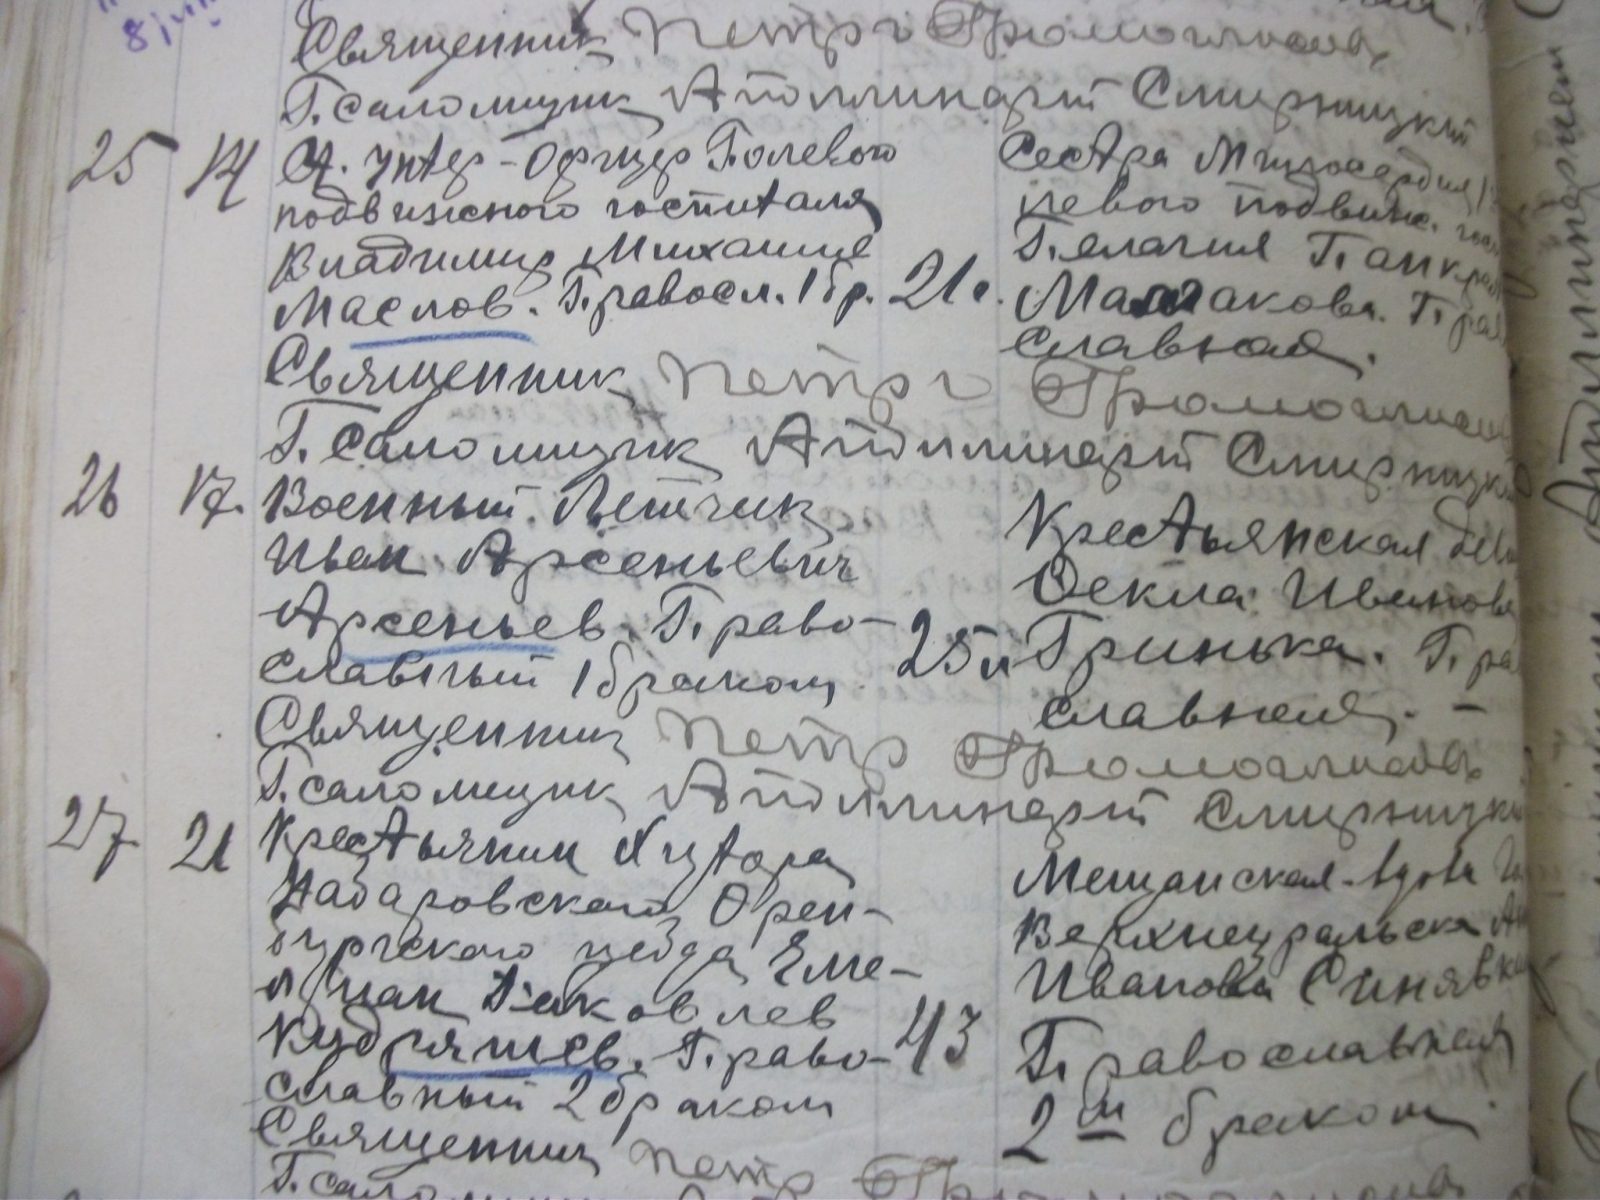 Священник Петр Громогласов
Псаломщик Аполлинарий Смирницкий
25 14 Ст. унтер-офицер Полевого
подвижного госпиталя
Владимир Михаилов
Маслов. Правосл. 1 бр. 21 г.
Сестра Милосердия
левого подвижн. гос
Пелагия Панкра
Малакова. Пра
славная.
Священник Петр Громогласов
Псаломщик Аполлинарий Смирницкий
26 17. Военный Летчик
Иван Арсеньевич
Арсеньев. Право-
славный 1 браком 25 л
Крестьянская де
Фекла Иванова
Гринька. Пра
славная. -
Священник Петр Громогласов
Псаломщик Аполлинарий Смирницкий
27 21 Крестьянин Хутора
Орен-
бургского уезда Еме-
льян Яковлев
Кудряшев. Право- 43
славный 2 браком
Мещанская вдова
Верхнеуральска Ан
Иванова Синявк
Православная
2м браком
Священник Петр